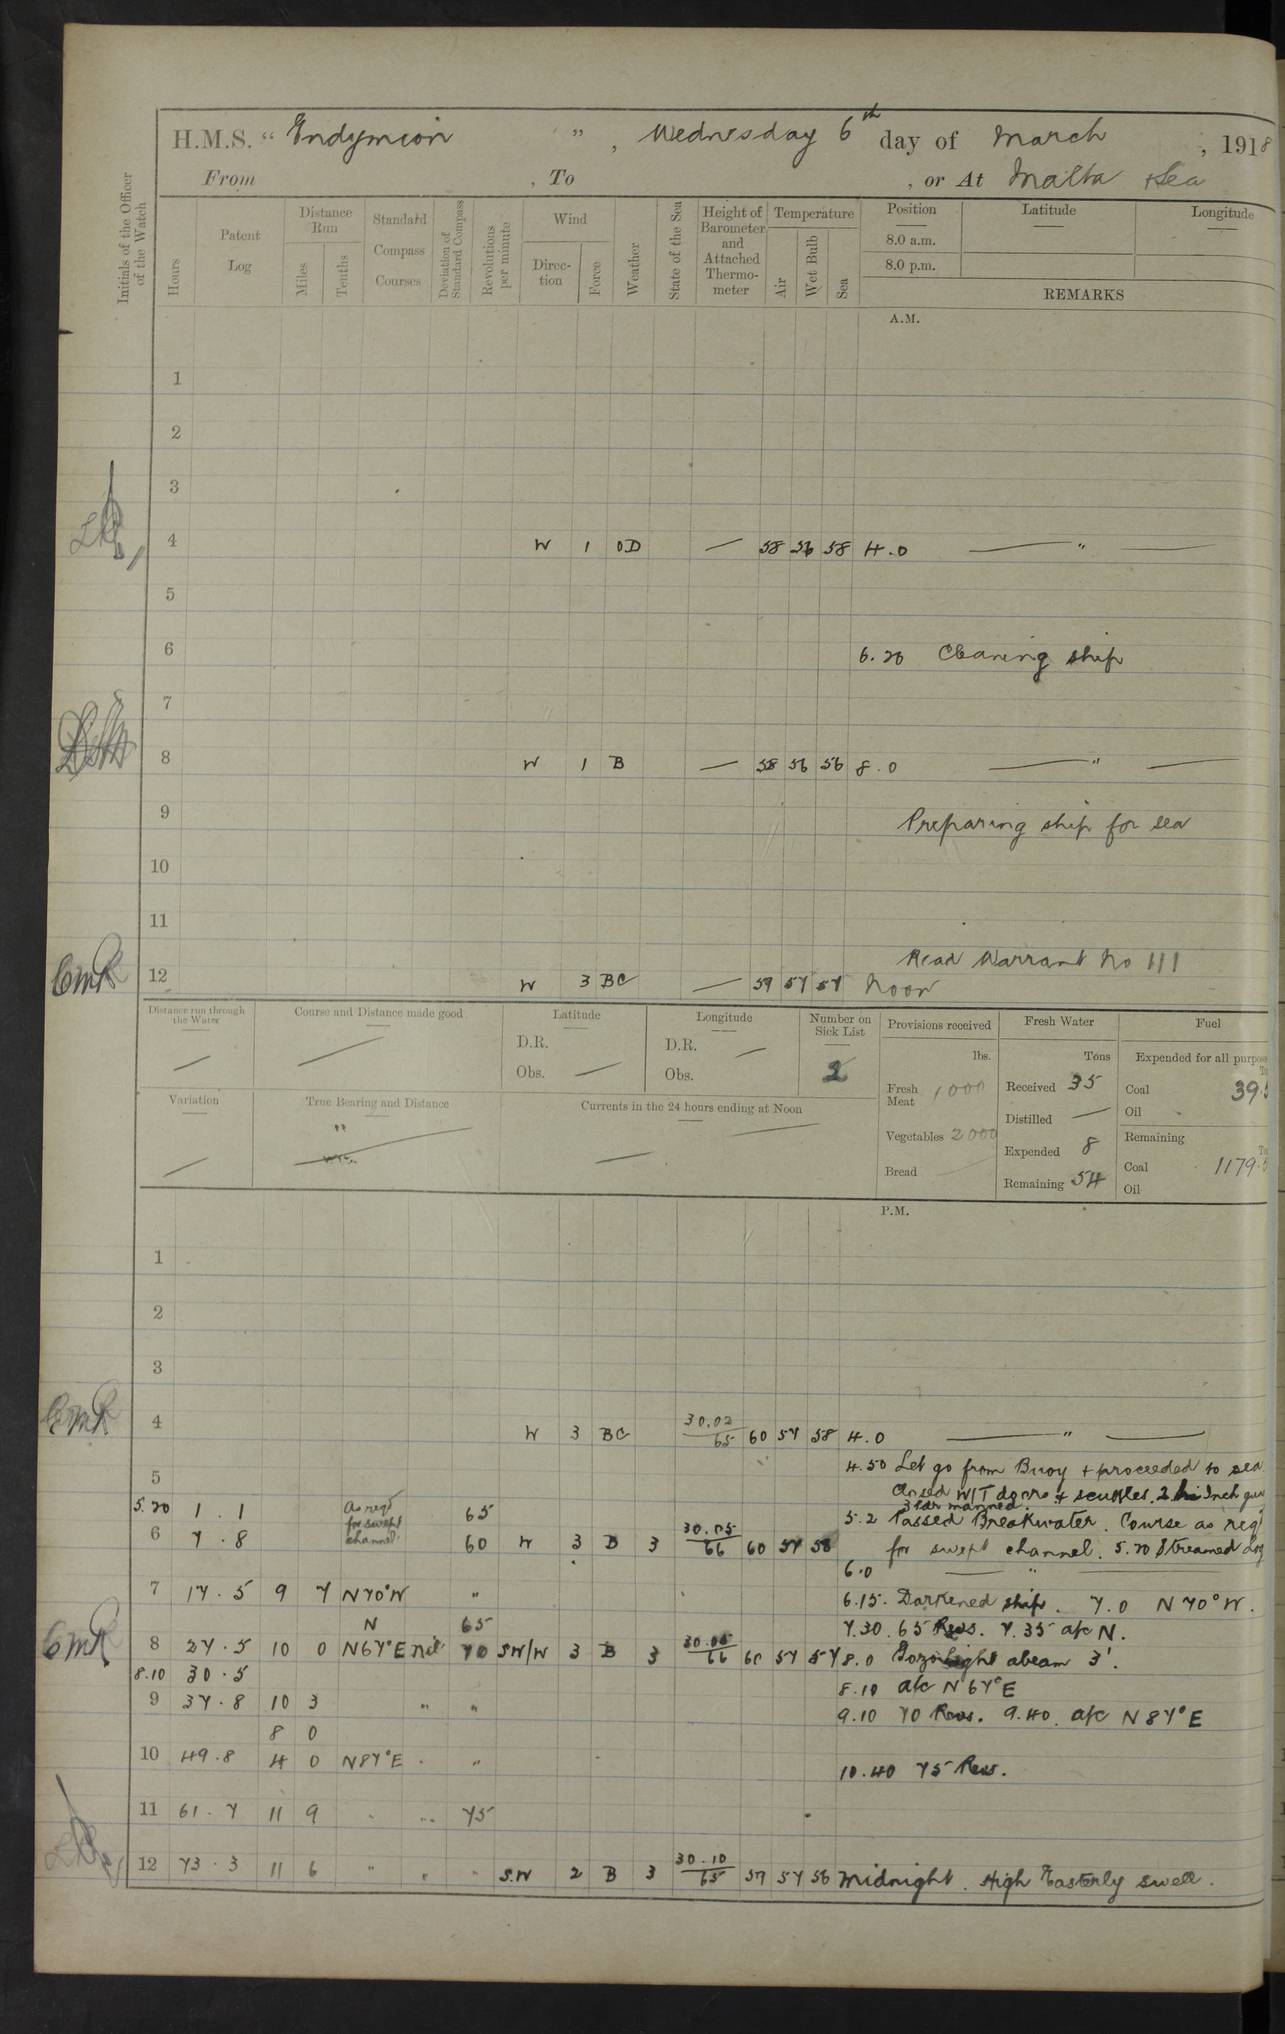 H.M.S. "Endymion", Wednesday 6th day of March, 1918
From , To , or At Malta & Sea
Initials of the Officer of the Watch
Hours
Patent Log
Distance Run
Miles
Tenths
Standard Compass Courses
Deviation of Standard Compass
Revolutions per minute
Wind
Direction
Force
Weather
State of the Sea
Height of Barometer and Attached Thermometer
Temperature
Air
Wet Bulb
Sea
Position
8.0 a.m.
8.0 p.m.
Latitude
Longitude
REMARKS
A.M.
1
2
3
4 W 1 OD — 58 56 58 4.0 — " —
5
6 6.20 Cleaning ship
7
8 W 1 B — 58 56 56 8.0 — " —
9 Preparing ship for sea
10
11
Read Warrant No 111
CMR 12 W 3 BC — 59 57 57 Noon
Distance run through the Water —
Course and Distance made good —
Latitude D.R. Obs. —
Longitude D.R. — Obs.
Number on Sick List 2
Provisions received lbs.
Fresh Meat 1000
Vegetables 2000
Bread —
Fresh Water Tons
Received 35
Distilled —
Expended 8
Remaining 54
Fuel
Expended for all purpose
Coal 39.5
Oil
Remaining
Coal 1179.5
Oil
Variation —
True Bearing and Distance
"
Currents in the 24 hours ending at Noon —
P.M.
1
2
3
CMR 4 W 3 BC 30.02 65 60 57 58 4.0 — " —
4.50 Let go from Buoy & proceeded to sea
5 Closed W/T doors & scuttles. 2 Inch gun
manned
5.20 1.1 As reqd for swept channel 65 5.2 Passed Breakwater. Course as reqd
6 7.8 60 W 3 B 3 30.05 66 60 57 58 for swept channel. 5.20 Streamed Log
6.0 — " —
7 17.5 9 7 N70°W " 6.15. Darkened ship. 7.0 N70°W.
N 65 7.30. 65 Revs. 7.35 a/c N.
CMR 8 27.5 10 0 N67°E nil 70 SW/W 3 B 3 30.05 66 60 57 57 8.0 Gozo Light abeam 3'.
8.10 30.5 8.10 a/c N67°E
9 37.8 10 3 " " 9.10 70 Revs. 9.40. a/c N87°E
8 0
10 49.8 4 0 N87°E . " 10.40 75 Revs.
11 61.7 11 9 " " 75
12 73.3 11 6 " " " S.W 2 B 3 30.10 65 57 57 56 Midnight. High Easterly swell.